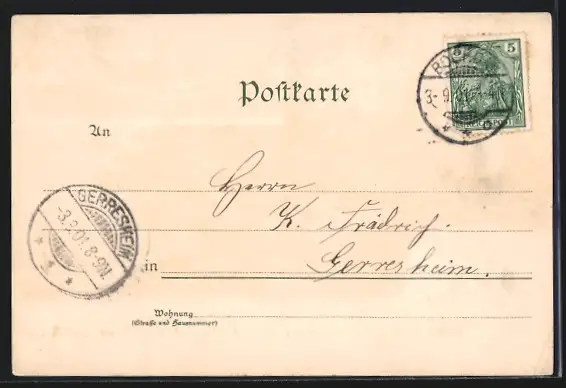 5
3-9.01
Postkarte
An
Herrn
K. Frädrich.
GERRESHEIM
-3.9.01.8-9N.
in Gerresheim.
Wohnung
(Straße und Hausnummer)